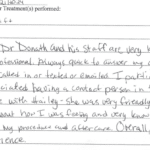 r Treatment(s) performed:
Dr Donath and his staff are very h
ofessional. Always quick to answer my q
alled in or texted or emailed. I putin
iated having a contact person in
e with Hailey - she was very friendly
out how I was feeling and very know
my procedure and after care. Overall,
ience.